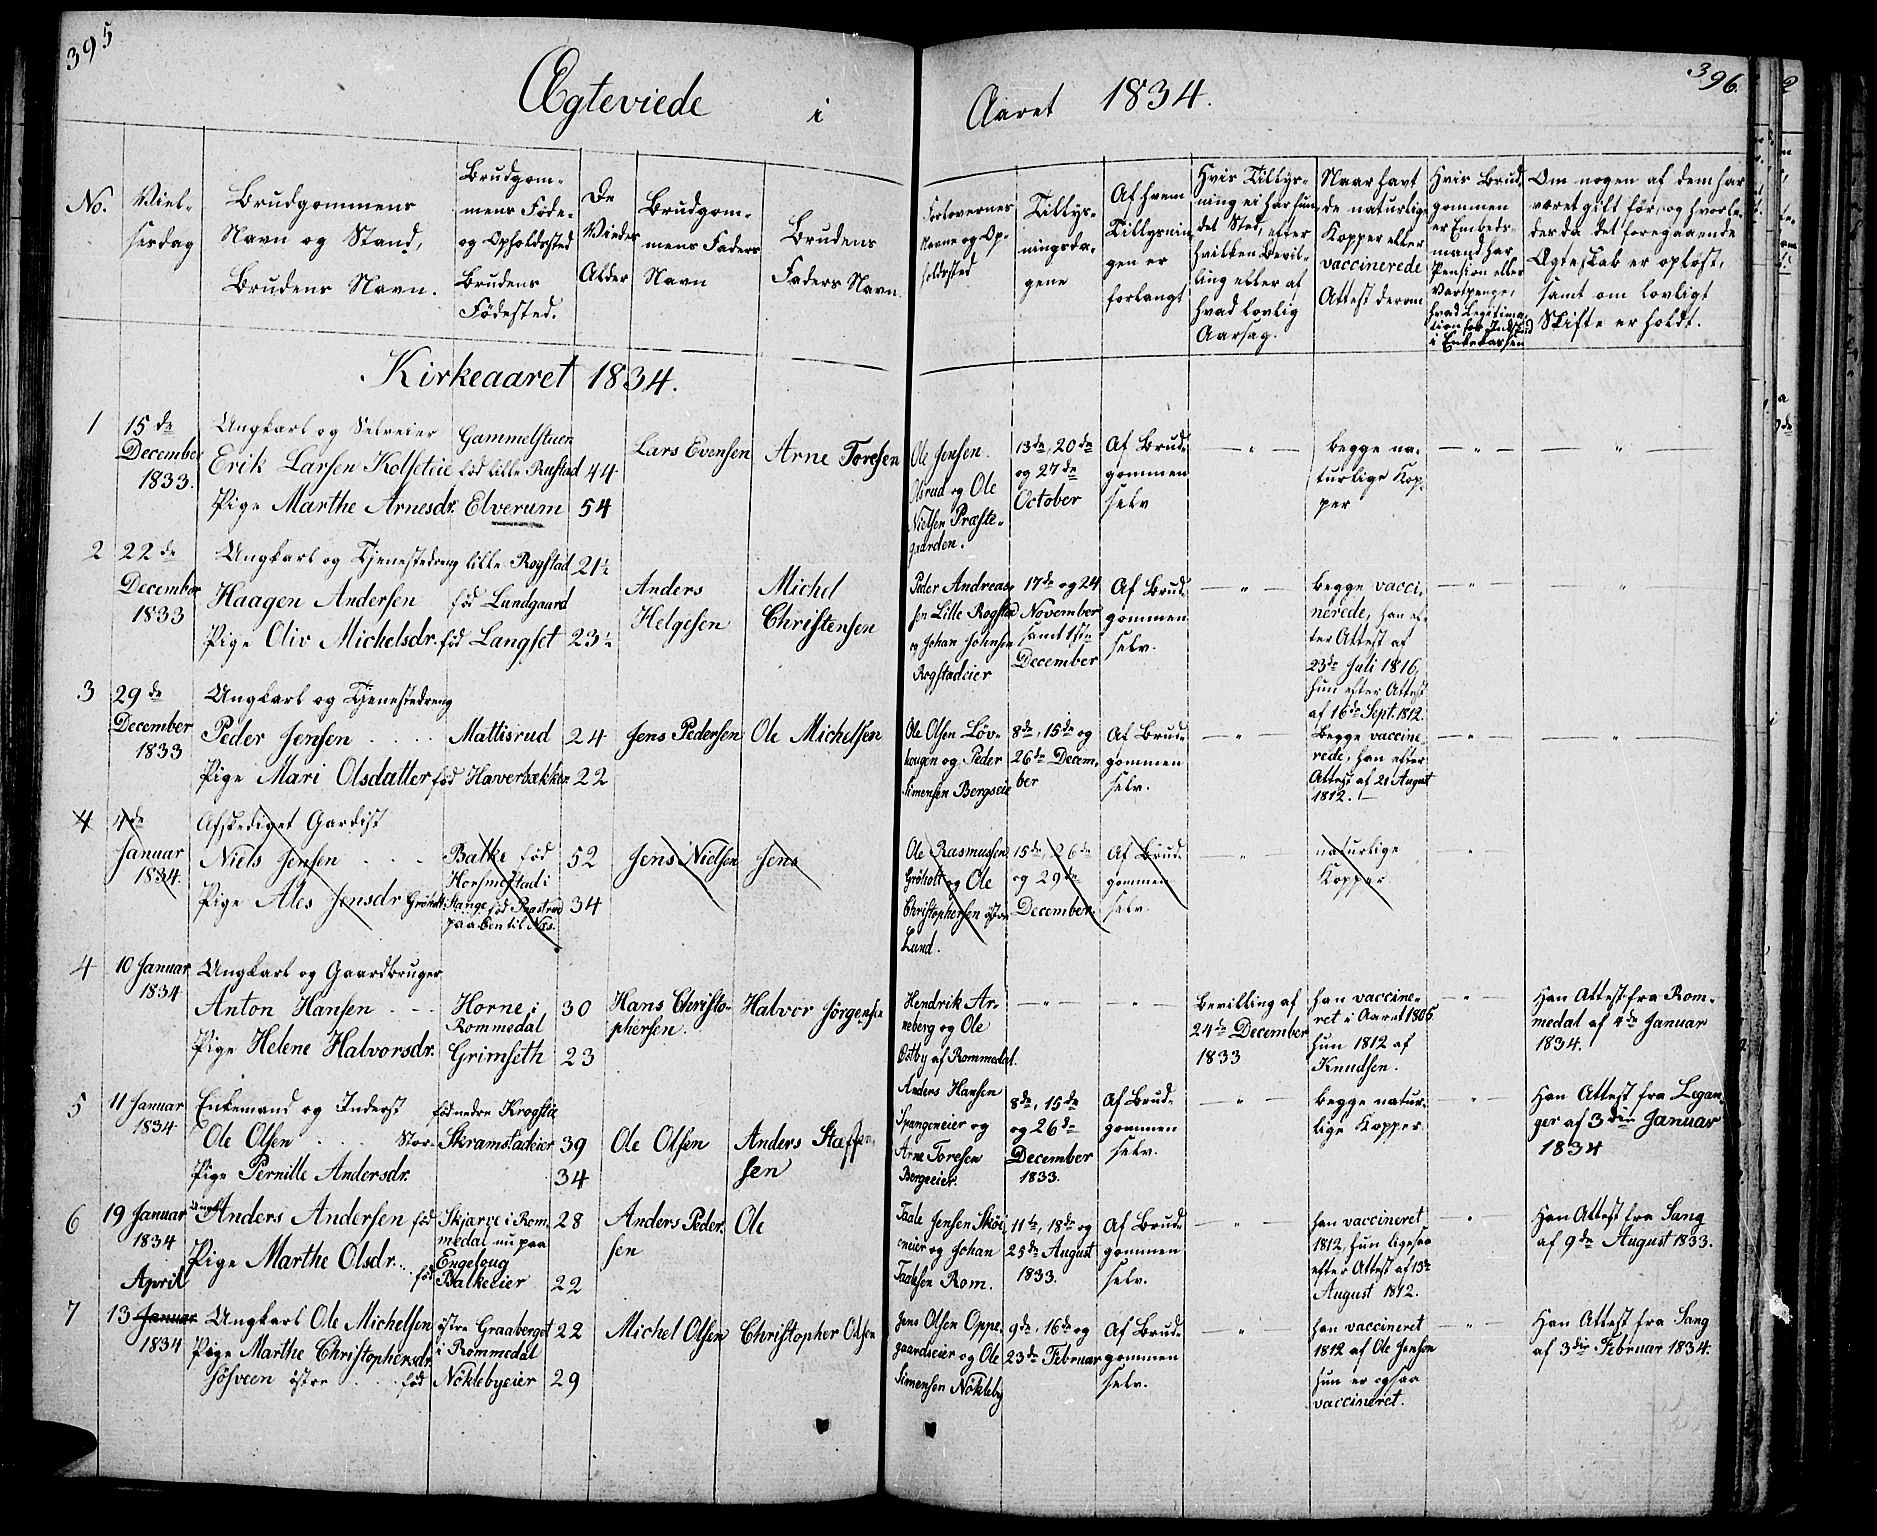 395
Ægteviede i
Aaret 1834.
396.
No.
Viel-
sesdag
Brudgommens
Navn og Stand,
Brudens Navn.
Brudgom-
mens Føde-
og Opholdssted
Brudens
Fødested.
De
Viedes
Alder
Brudgom-
mens Faders
Navn
Brudens
Faders Navn.
Forlovernes
Navne og Op-
holdssted
Tillys-
ningsda-
gene
Af hvem
Tillysnin-
gen er
forlangt
Hvis Tillys-
ning ei har fun-
det Sted, efter
hvilken Bevil-
ling eller af
hvad lovlig
Aarsag.
Naar havt
de naturlige
Kopper eller
vaccinerede
Attest derom
Hvis Brud-
gommen
er Embeds-
mand har
Pension eller
Vartpenge,
hvad Legitima-
tion for Indskud
i Enkekassen
Om nogen af dem har
været gift før, og hvorle-
des da det foregaaende
Ægteskab er opløst,
samt om lovligt
Skifte er holdt.
Kirkeaaret 1834.
1
15de
December
1833.
Ungkarl og Selveier
Erik Larsen Kolseteie
Pige Marthe Arnesdr.
Gammelstuen
fød lille Rustad
Elverum
44
54
Lars Evensen
Arne Toresen
Ole Jensen
Olsrud og Ole
Nielsen Præste-
gaarden.
13de, 20de
og 27de
October
Af Brud-
gommen
selv
— " —
begge na-
turlige Kop-
per
— " —
— " —
2
22de
December
1833
Ungkarl og Tjenestedreng
Haagen Andersen
Pige Oliv Michelsdr.
lille Rogstad
fød Lundgaard
fød Langset
21½
23½
Anders
Helgesen
Michel
Christensen
Peder Andreas-
sen Lille Rogstad
og Johan Johnsen
Rogstadeier
17de og 24
November
samt 1ste
December
Af Brud-
gommen
selv.
— " —
begge vacci-
nerede, han ef-
ter Attest af
23de Juli 1816,
hun efter Attest
af 16de Sept. 1812.
— " —
— " —
3
29de
December
1833
Ungkarl og Tjenestedreng
Peder Jensen . . . .
Pige Mari Olsdatter
Mattisrud
fød Haverbækken
24
22
Jens Pedersen
Ole Michelsen
Ole Olsen Løv-
haugen og Peder
Simensen Bergseie
8de, 15de og
26de Decem-
ber
Af Brud-
gommen
selv.
— " —
Begge vaccine-
rede, han efter
Attest af 21 August
1812. —
— " —
— " —
4
4de
Januar
1834.
Afskediget Gardist
Niels Jensen . . .
Pige Ales Jensdr Grøholt
Balke fød
Horsmestad i
Stange fød Prestrud
paa Ben til Næs.
52
34
Jens Nielsen
Jens
Ole Rasmussen
Grøholt og Ole
Christophersen østre
Lund.
15de, 26de
og 29de
December.
Af Brud-
gommen
selv.
— " —
naturlige
Kopper.
— " —
4
10 Januar
1834
Ungkarl og Gaardbruger
Anton Hansen . . .
Pige Helene Halvorsdr.
Horne i
Rommedal
Grimseth
30
23
Hans Christo-
phersen.
Halvor Jørgensen
Hendrik Ar-
neberg og Ole
Østby af Rommedal.
— " —
— " —
Bevilling af
24de December
1833
han vaccine-
ret i Aaret 1806
hun 1812 af
Knudsen.
— " —
Han Attest fra Rom-
medal af 4de Januar
1834.
5
11 Januar
1834
Enkemand og Inderst
Ole Olsen . . . . Stor-
Pige Pernille Andersdr.
fød nedre Krogstie
Skramstadeier
39
34
Ole Olsen
Anders Staffen-
sen
Anders Hansen
Spangeneier og
Arne Toresen
Bergeeier.
8de, 15de
og 26de
December
1833.
Af Brud-
gommen
selv.
— " —
begge natur-
lige Kopper
— " —
Han Attest fra Legan-
ger af 3die Januar
1834
6
19 Januar
1834
Ungk. Anders Andersen fød
Pige Marthe Olsdr. . . fød
Skjarve i Rom-
medal nu paa
Engeloug
Balkeeier
28
22
Anders Peder-
sen
Ole
Taale Jensen Skøi-
eneier og Johan
Taalesen Rom.
11te, 18de og
25de August
1833.
Af Brud-
gommen
selv.
— " —
han vaccineret
1812, hun ligesaa
efter Attest af 13de
August 1812.
— " —
Han Attest fra Vang
af 9de August 1833.
7
April
13 Januar
1834
Ungkarl Ole Michelsen
Pige Marthe Christophersdr.
Søsveen østre . . . fød
østre Graaberget
i Rommedal
Nøklebyeier
22
29
Michel Olsen
Christopher Olsen
Jens Olsen Oppe-
gaardseier og Ole
Simensen Nøkleby
9de, 16de og
23de Februar
Af Brud-
gommen
selv.
— " —
han vaccineret
1812 af Ole Jensen
hun er ogsaa
vaccineret.
— " —
Han Attest fra Vang
af 3die Februar 1834.